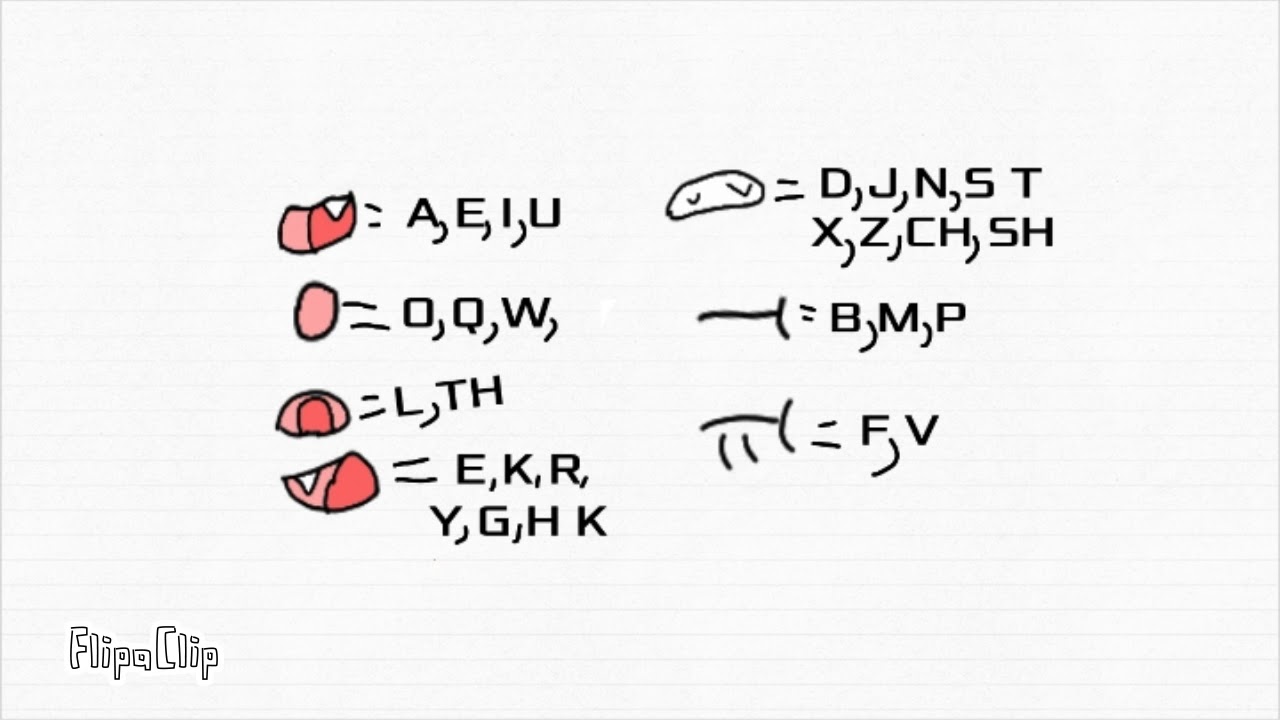 = A, E, I, U
= O, Q, W,
= L, TH
= E, K, R,
Y, G, H K
= D, J, N, S T
X, Z, CH, SH
= B, M, P
= F, V
FlipaClip